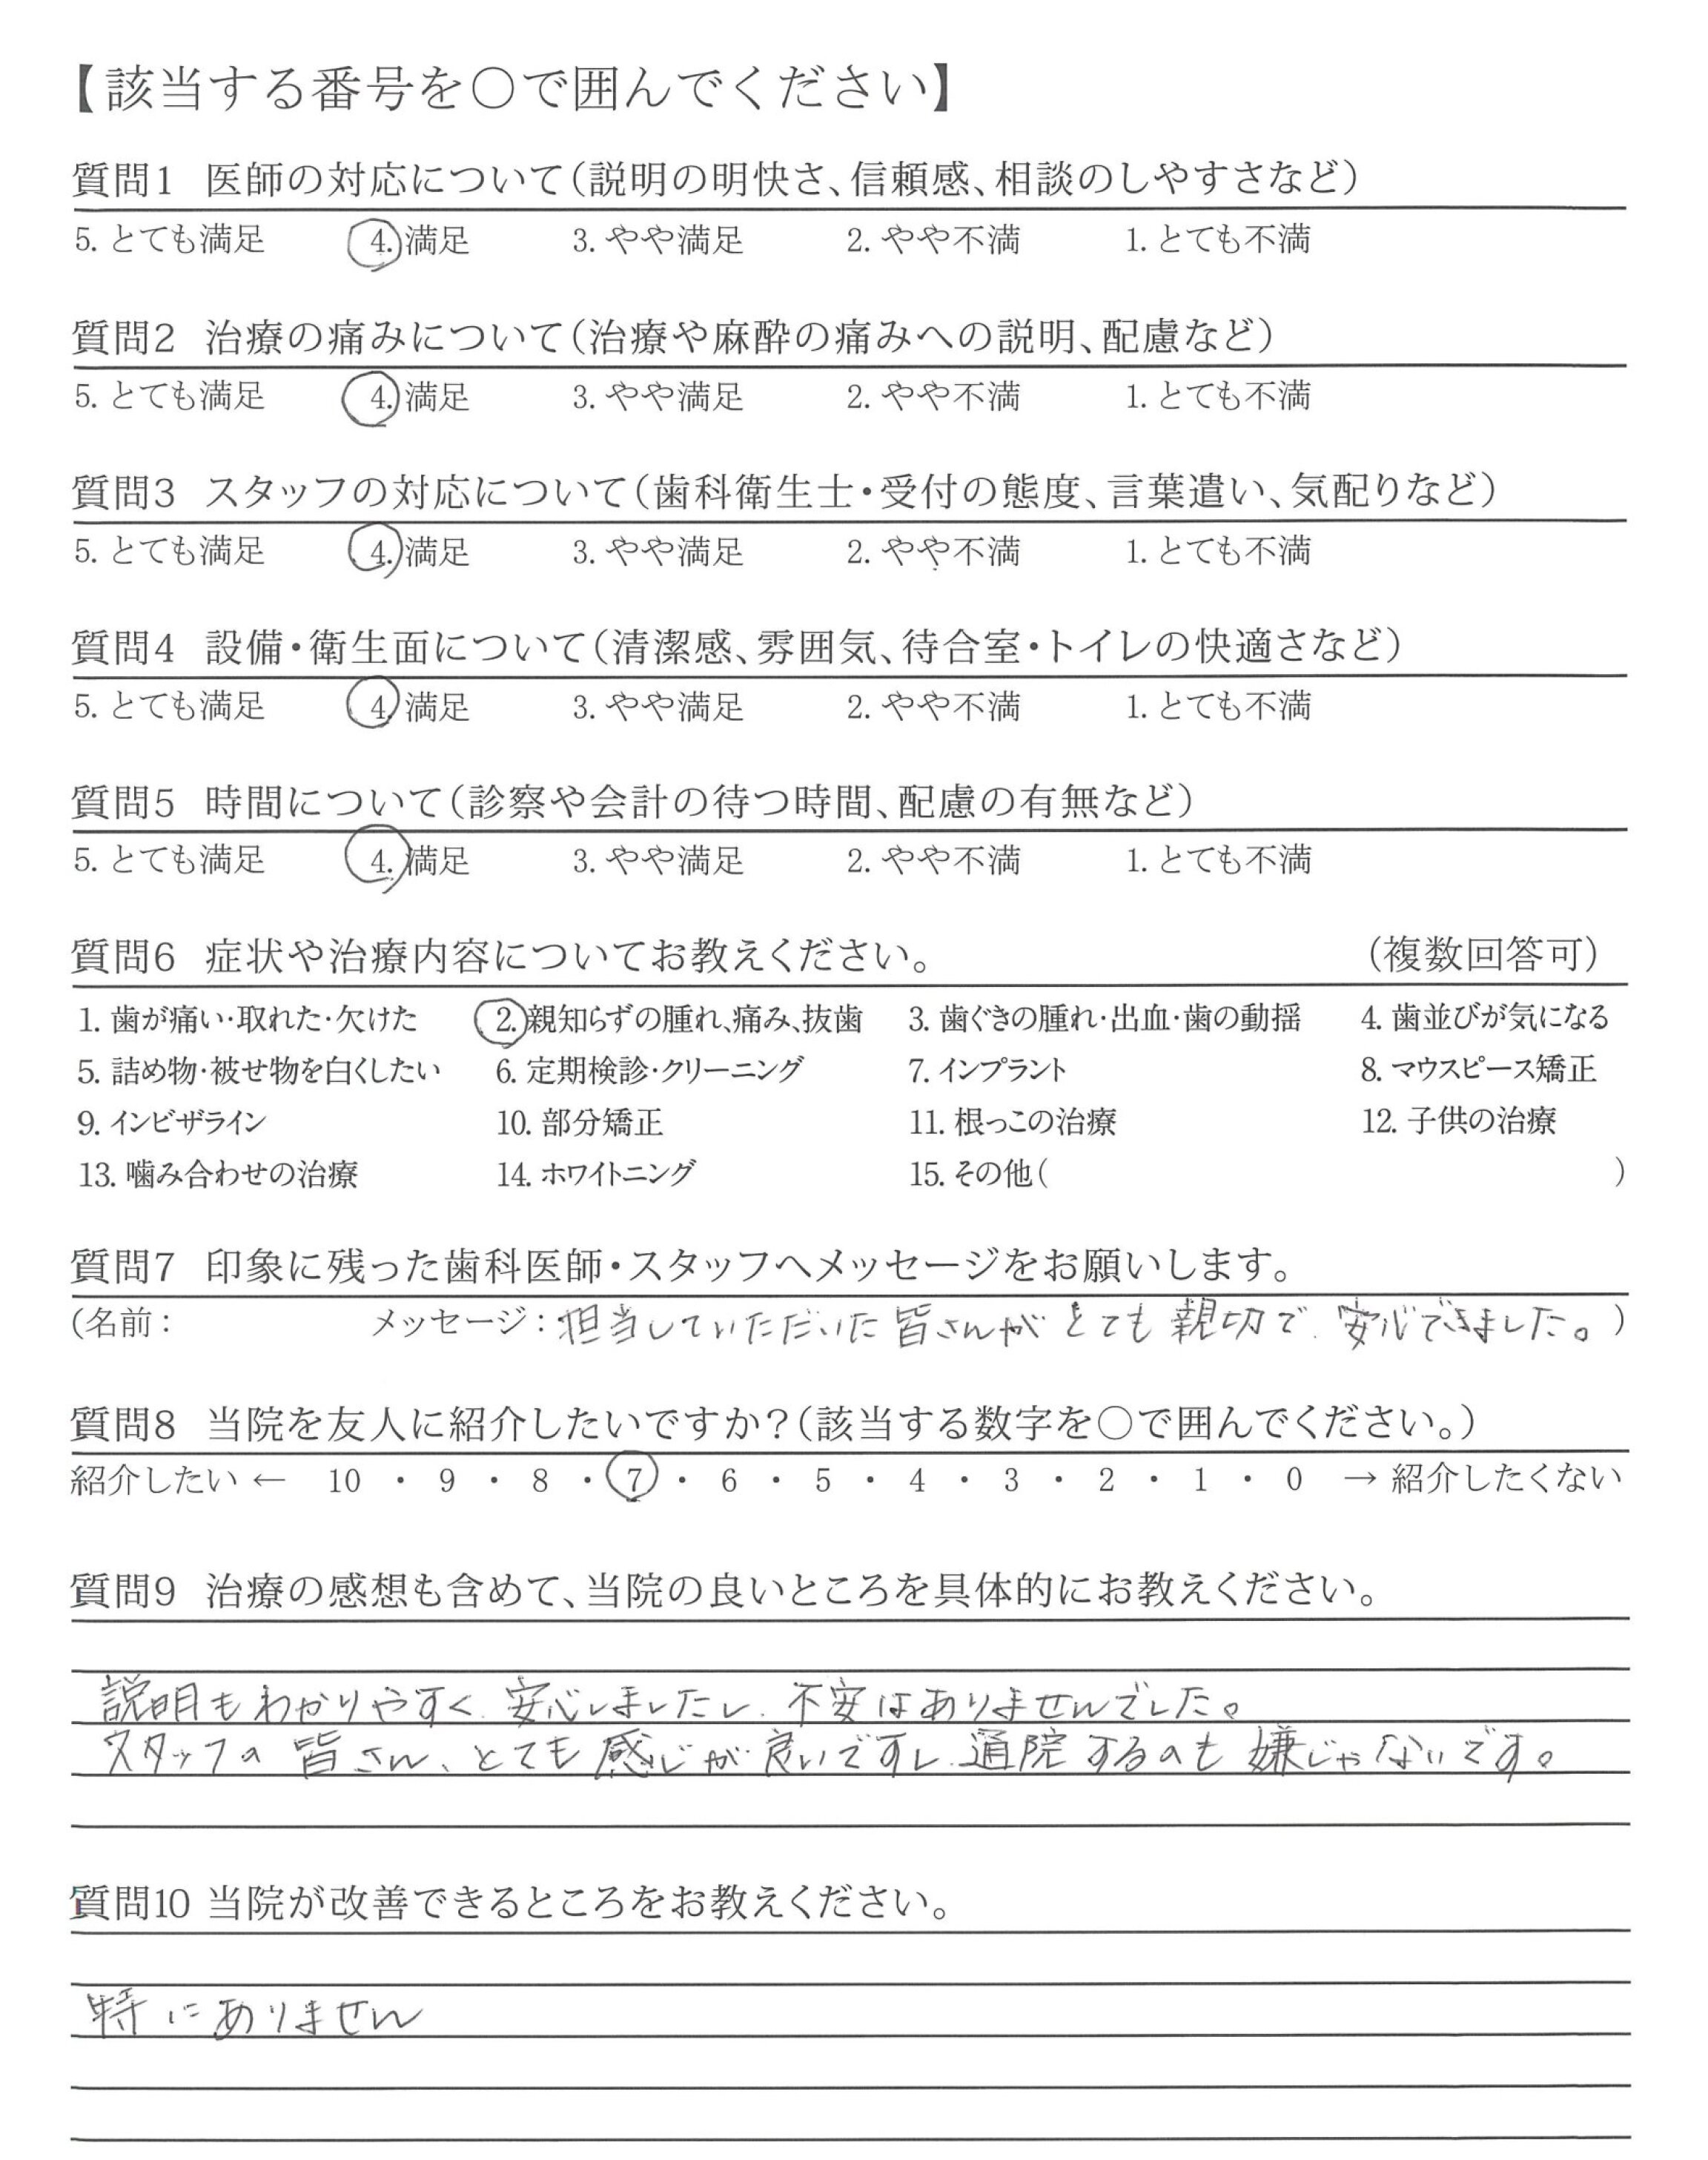 【該当する番号を〇で囲んでください】
質問1 医師の対応について(説明の明快さ、信頼感、相談のしやすさなど)
5. とても満足 4. 満足 3. やや満足 2. やや不満 1. とても不満
質問2 治療の痛みについて(治療や麻酔の痛みへの説明、配慮など)
5. とても満足 4. 満足 3. やや満足 2. やや不満 1. とても不満
質問3 スタッフの対応について(歯科衛生士・受付の態度、言葉遣い、気配りなど)
5. とても満足 4. 満足 3. やや満足 2. やや不満 1. とても不満
質問4 設備・衛生面について(清潔感、雰囲気、待合室・トイレの快適さなど)
5. とても満足 4. 満足 3. やや満足 2. やや不満 1. とても不満
質問5 時間について(診察や会計の待つ時間、配慮の有無など)
5. とても満足 4. 満足 3. やや満足 2. やや不満 1. とても不満
質問6 症状や治療内容についてお教えください。 (複数回答可)
1. 歯が痛い・取れた・欠けた 2. 親知らずの腫れ、痛み、抜歯 3. 歯ぐきの腫れ・出血・歯の動揺 4. 歯並びが気になる
5. 詰め物・被せ物を白くしたい 6. 定期検診・クリーニング 7. インプラント 8. マウスピース矯正
9. インビザライン 10. 部分矯正 11. 根っこの治療 12. 子供の治療
13. 噛み合わせの治療 14. ホワイトニング 15. その他( )
質問7 印象に残った歯科医師・スタッフへメッセージをお願いします。
(名前: メッセージ:担当していただいた皆さんがとても親切で、安心できました。)
質問8 当院を友人に紹介したいですか?(該当する数字を〇で囲んでください。)
紹介したい ← 10 ・ 9 ・ 8 ・ 7 ・ 6 ・ 5 ・ 4 ・ 3 ・ 2 ・ 1 ・ 0 → 紹介したくない
質問9 治療の感想も含めて、当院の良いところを具体的にお教えください。
説明もわかりやすく、安心しましたし、不安はありませんでした。
スタッフの皆さん、とても感じが良いですし、通院するのも嫌じゃないです。
質問10 当院が改善できるところをお教えください。
特にありません